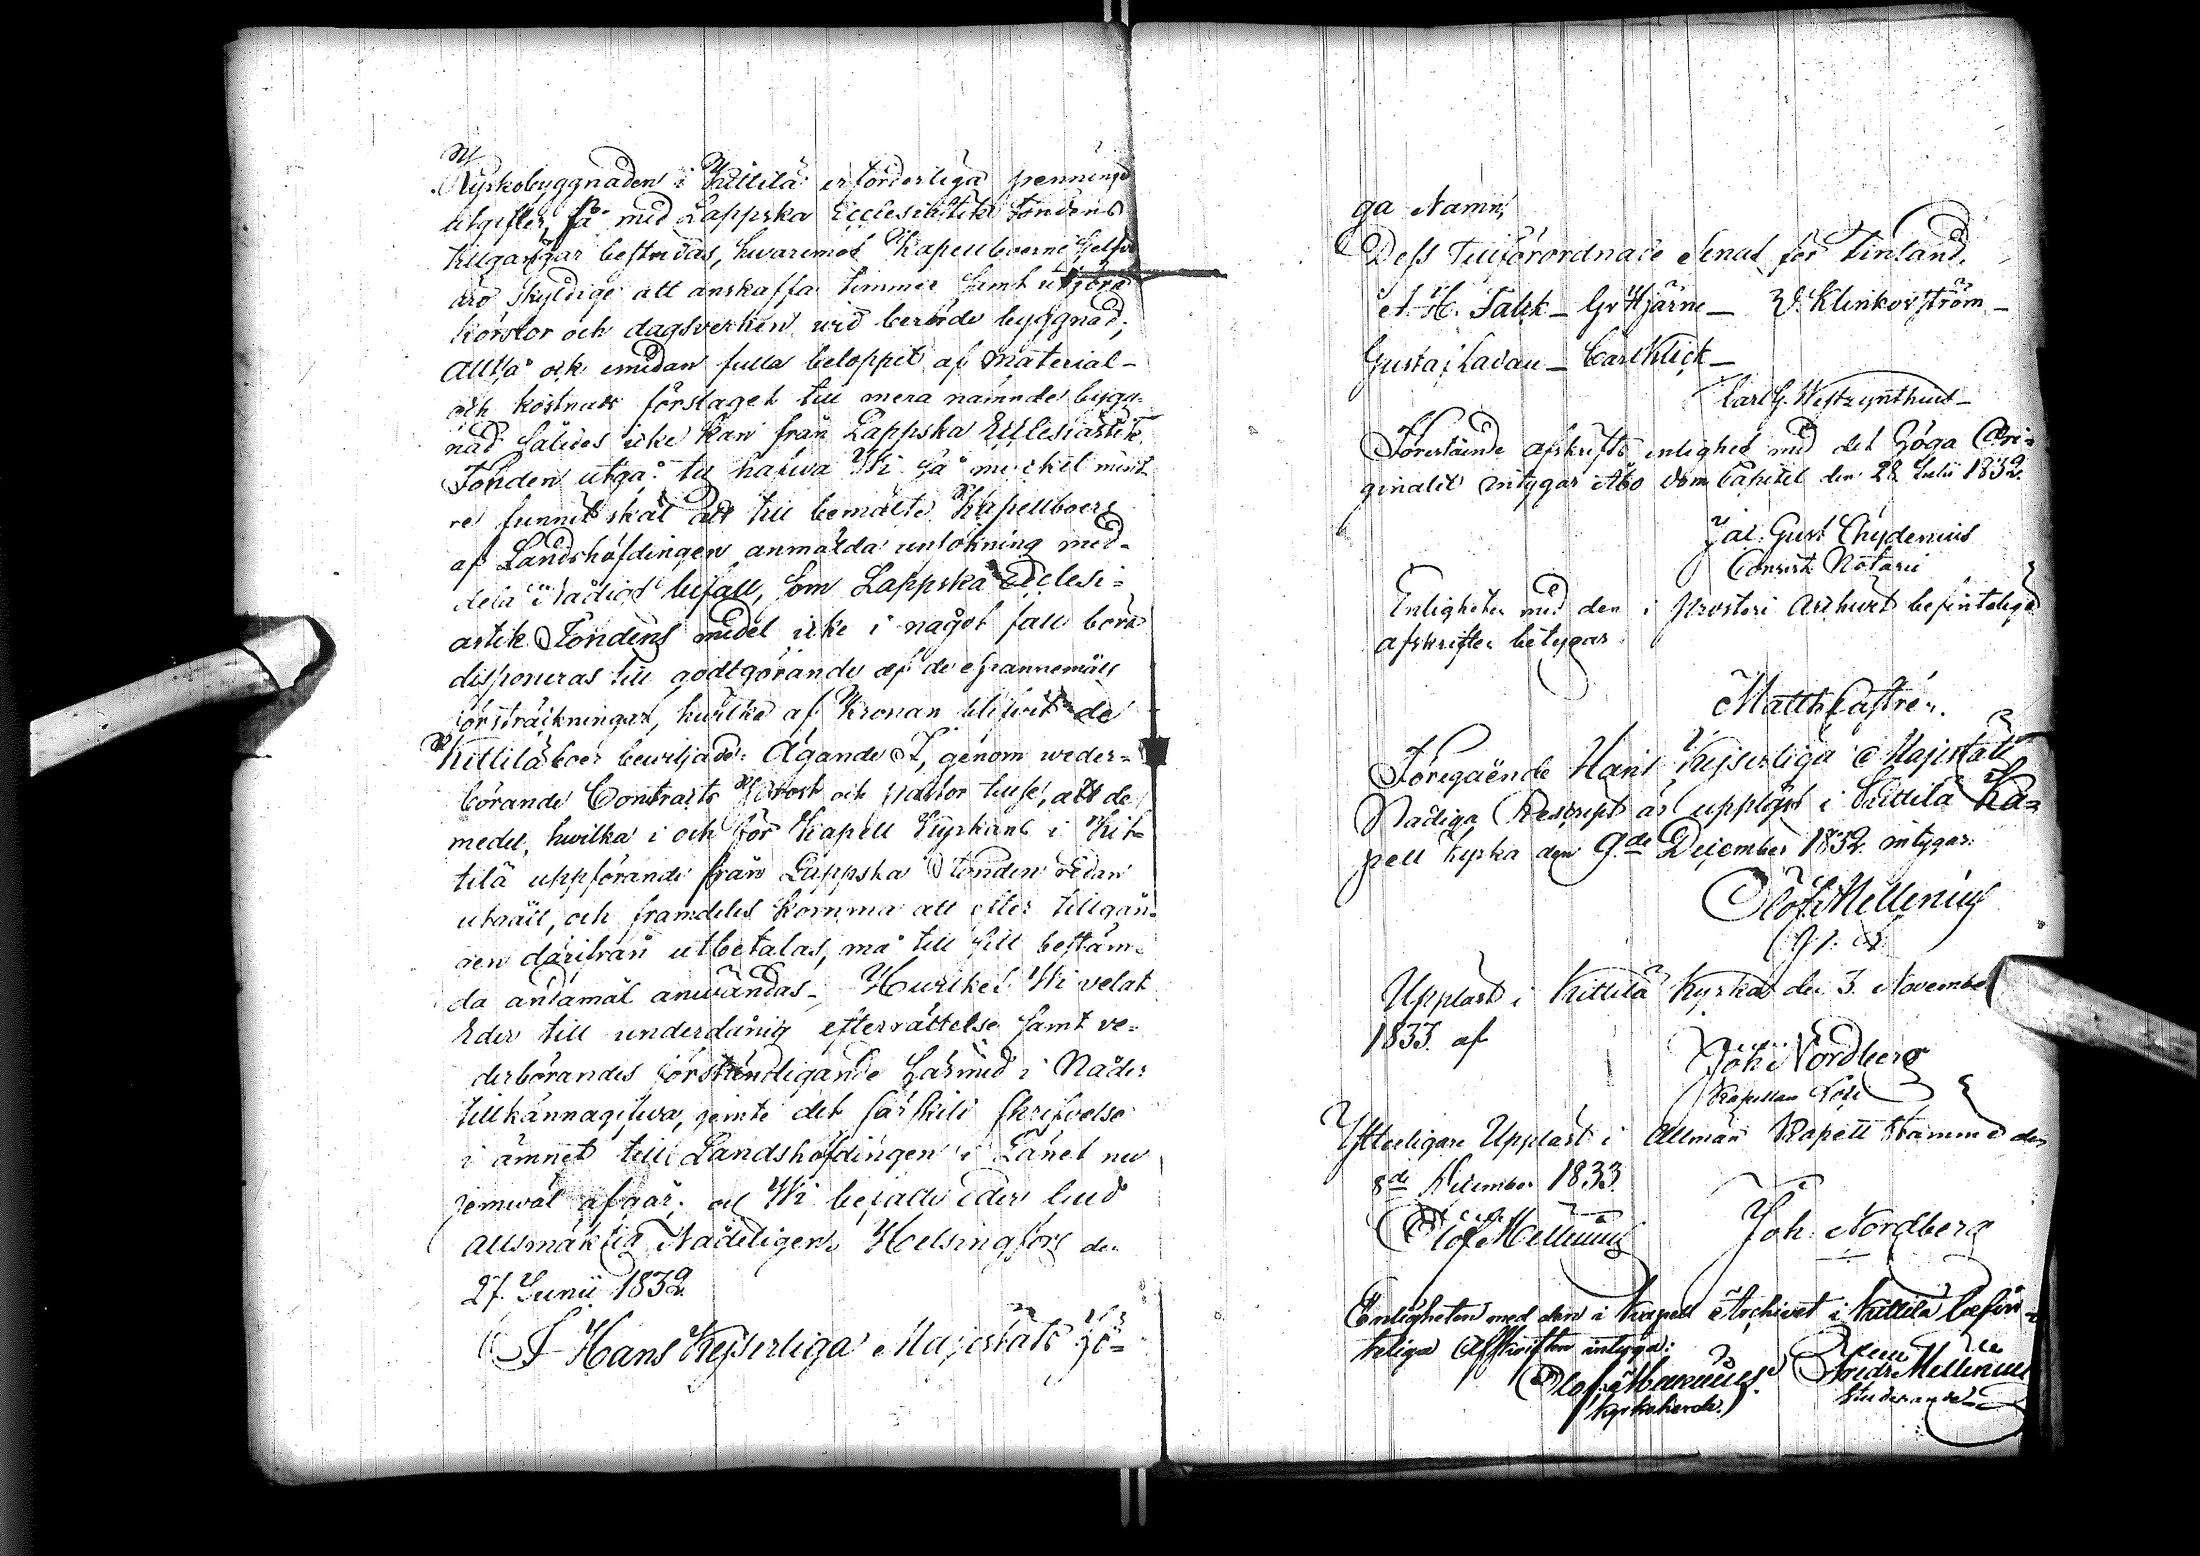 Kyrkobyggnaden i Kittilä erforderliga pennings
utgifter, få med Lappska Ecclesiastik Fondens
tillgångar bestridas, hwaremot Kapellboerne sjelfve
äro skyldige att anskaffa timmer samt utgöra
körslor och dagsverken wid berörde byggnad;
Alltså och emedan fulla beloppet af Material-
och kostnads förslaget till mera nämnde bygg-
nad således icke kan från Lappska Ecclesiastik
Fonden utgå: ty hafwa Wi så mycket mind-
re funnit skäl att till bemälte Kapellboers
af Landshöfdingen anmälda ansökning med-
dela Nådigt bifall, som Lappska Ecclesi-
astik Fondens medel icke i något fall böra
disponeras till godtgörande af de spannemåls
försträckningar, hwilka af Kronan blifwit de
Kittiläboer bewiljade: Ägande I, genom weder-
börande Contracts Prost och Pastor tillse, att de
medel, hwilka i och för Kapell Kyrkans i Kit-
tilä uppförande från Lappska Fonden redan
utgått, och framdeles komma att efter tillgån-
gen därifrån utbetalas, må till sitt bestäm-
da ändamål anwändas_ Hwilket Wi velat
Eder till underdånig efterrättelse samt ve-
derbörandes förständigande härmed i Nåder
tillkännagifwa, jemte det särskild skrifvelse
i ämnet till Landshöfdingen i Länet nu
jemwäl afgår; och Wi befalle Eder Gud
Allsmäktig Nådeligen. Helsingfors den
27 Junii 1832.
I Hans Kejserliga Majestäts Hö-
ga Namn,
Dess Tillförordnade Senat för Finland.
A. H. Falck_ G. Hjärne_ V. Klinkowström_
Gustaf Ladau_ Carl Klick_
Carl G. Westzynthius_
Förestående afskrifts enlighet med det höga Ori-
ginalet intygar Åbo Dom Capitel den 28 Julii 1832.
Jac. Gust Chydenius
Consist. Notarie
Enligheten med den i Prosteri Archivet befinteliga
afskriften betygar
Matth Castrén.
Föregående Hans Kejserliga Majestäts
Nådiga Rescript är uppläst i Kittilä Ka-
pell Kyrka den 9de December 1832 intygar.
Olof Mellenius
Uppläst i Kittilä Kyrka den 3. November
1833. af
Joh: Nordberg
Kapellan
Ytterligare Uppläst i Allmän Kapell Stämma den
8de December 1833.
Olof Mellenius Joh. Nordberg
Enligheten med den i Kapell Archivet i Kittilä befin-
teliga Afskriften intyga:
Olof Mellenius Fredr Mellenius
Kyrkoherde. Studerande